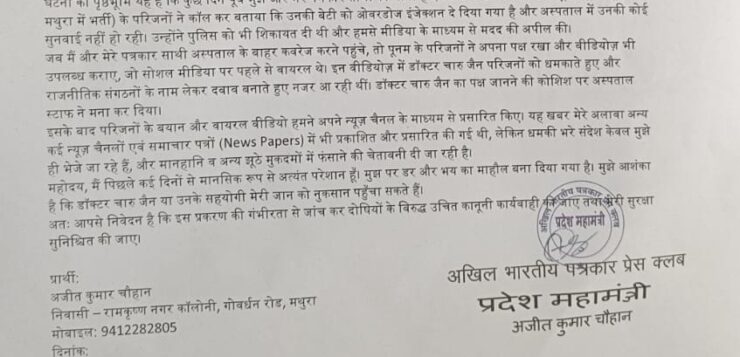 घटना की पृष्ठभूमि यह है कि कुछ दिन पूर्व मुझे और
मथुरा में भर्ती) के परिजनों ने कॉल कर बताया कि उनकी बेटी को ओवरडोज इंजेक्शन दे दिया गया है और अस्पताल में उनकी कोई
सुनवाई नहीं हो रही। उन्होंने पुलिस को भी शिकायत दी थी और हमसे मीडिया के माध्यम से मदद की अपील की।
जब मैं और मेरे पत्रकार साथी अस्पताल के बाहर कवरेज करने पहुंचे, तो पूनम के परिजनों ने अपना पक्ष रखा और वीडियोज़ भी
उपलब्ध कराए, जो सोशल मीडिया पर पहले से वायरल थे। इन वीडियोज़ में डॉक्टर चारु जैन परिजनों को धमकाते हुए और
राजनीतिक संगठनों के नाम लेकर दबाव बनाते हुए नजर आ रही थीं। डॉक्टर चारु जैन का पक्ष जानने की कोशिश पर अस्पताल
स्टाफ ने मना कर दिया।
इसके बाद परिजनों के बयान और वायरल वीडियो हमने अपने न्यूज़ चैनल के माध्यम से प्रसारित किए। यह खबर मेरे अलावा अन्य
कई न्यूज़ चैनलों एवं समाचार पत्रों (News Papers) में भी प्रकाशित और प्रसारित की गई थी, लेकिन धमकी भरे संदेश केवल मुझे
ही भेजे जा रहे हैं, और मानहानि व अन्य झूठे मुकदमों में फंसाने की चेतावनी दी जा रही है।
महोदय, मैं पिछले कई दिनों से मानसिक रूप से अत्यंत परेशान हूँ। मुझ पर डर और भय का माहौल बना दिया गया है। मुझे आशंका
है कि डॉक्टर चारु जैन या उनके सहयोगी मेरी जान को नुकसान पहुँचा सकते हैं।
अतः आपसे निवेदन है कि इस प्रकरण की गंभीरता से जांच कर दोषियों के विरुद्ध उचित कानूनी कार्यवाही की जाए तथा मेरी सुरक्षा
सुनिश्चित की जाए।
अखिल भारतीय पत्रकार प्रेस क्लब
प्रदेश महामंत्री
प्रार्थी:
अजीत कुमार चौहान
निवासी – रामकृष्ण नगर कॉलोनी, गोवर्धन रोड, मथुरा
मोबाइल: 9412282805
दिनांक:
अखिल भारतीय पत्रकार प्रेस क्लब
प्रदेश महामंत्री
अजीत कुमार चौहान